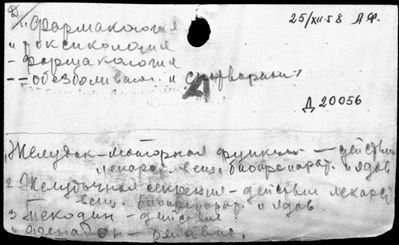 "Фармакология 25/XII-58 А.Ф.
и токсикология
– Фармакология
– – обезболивающ. и снотворащ.
21
Д 20056
Желудок – моторная функция – действие
лекарств. вещ. биопрепарат. и ядов
2 Желудочная секреция – действие лекарств.
вещ. биопрепарат. и ядов.
3 Текодин – действие
действие.